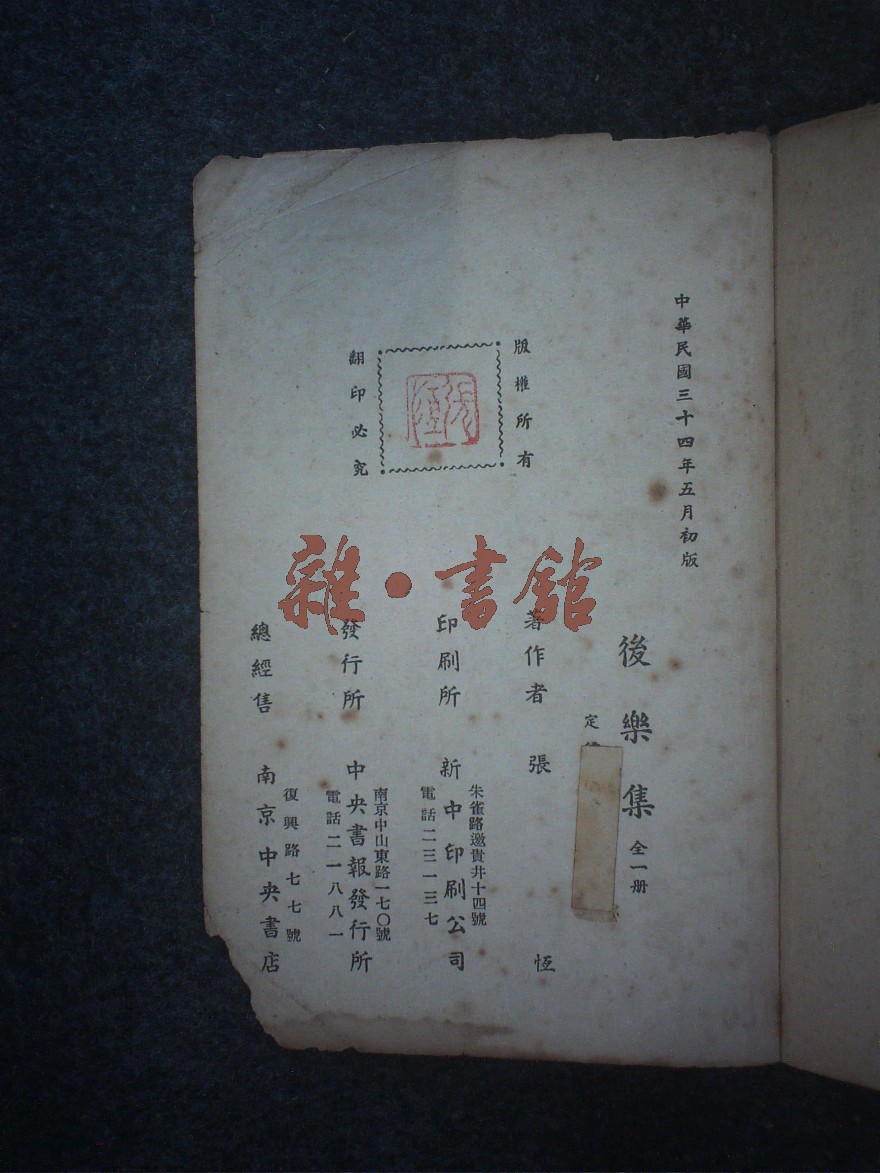 中華民國三十四年五月初版
後樂集 全一册
定
版權所有
翻印必究
張恆
著作者 張恆
印刷所 新中印刷公司
朱雀路邀貴井十四號
電話二三一三七
發行所 中央書報發行所
南京中山東路一七〇號
電話二一八八一
總經售 南京中央書店
復興路七七號
雜·書館